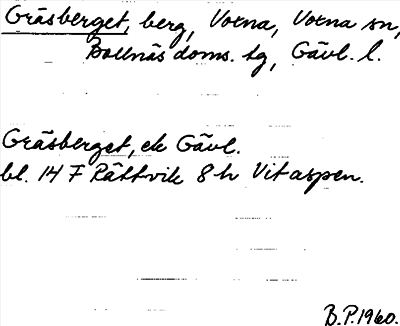 Gräsberget, berg, Voxna, Voxna sn,
Bollnäs doms. lg, Gävl. l.
Gräsberget, ek Gävl.
bl. 14 F Rättvik 8 h Vitaspen.
B.P. 1960.